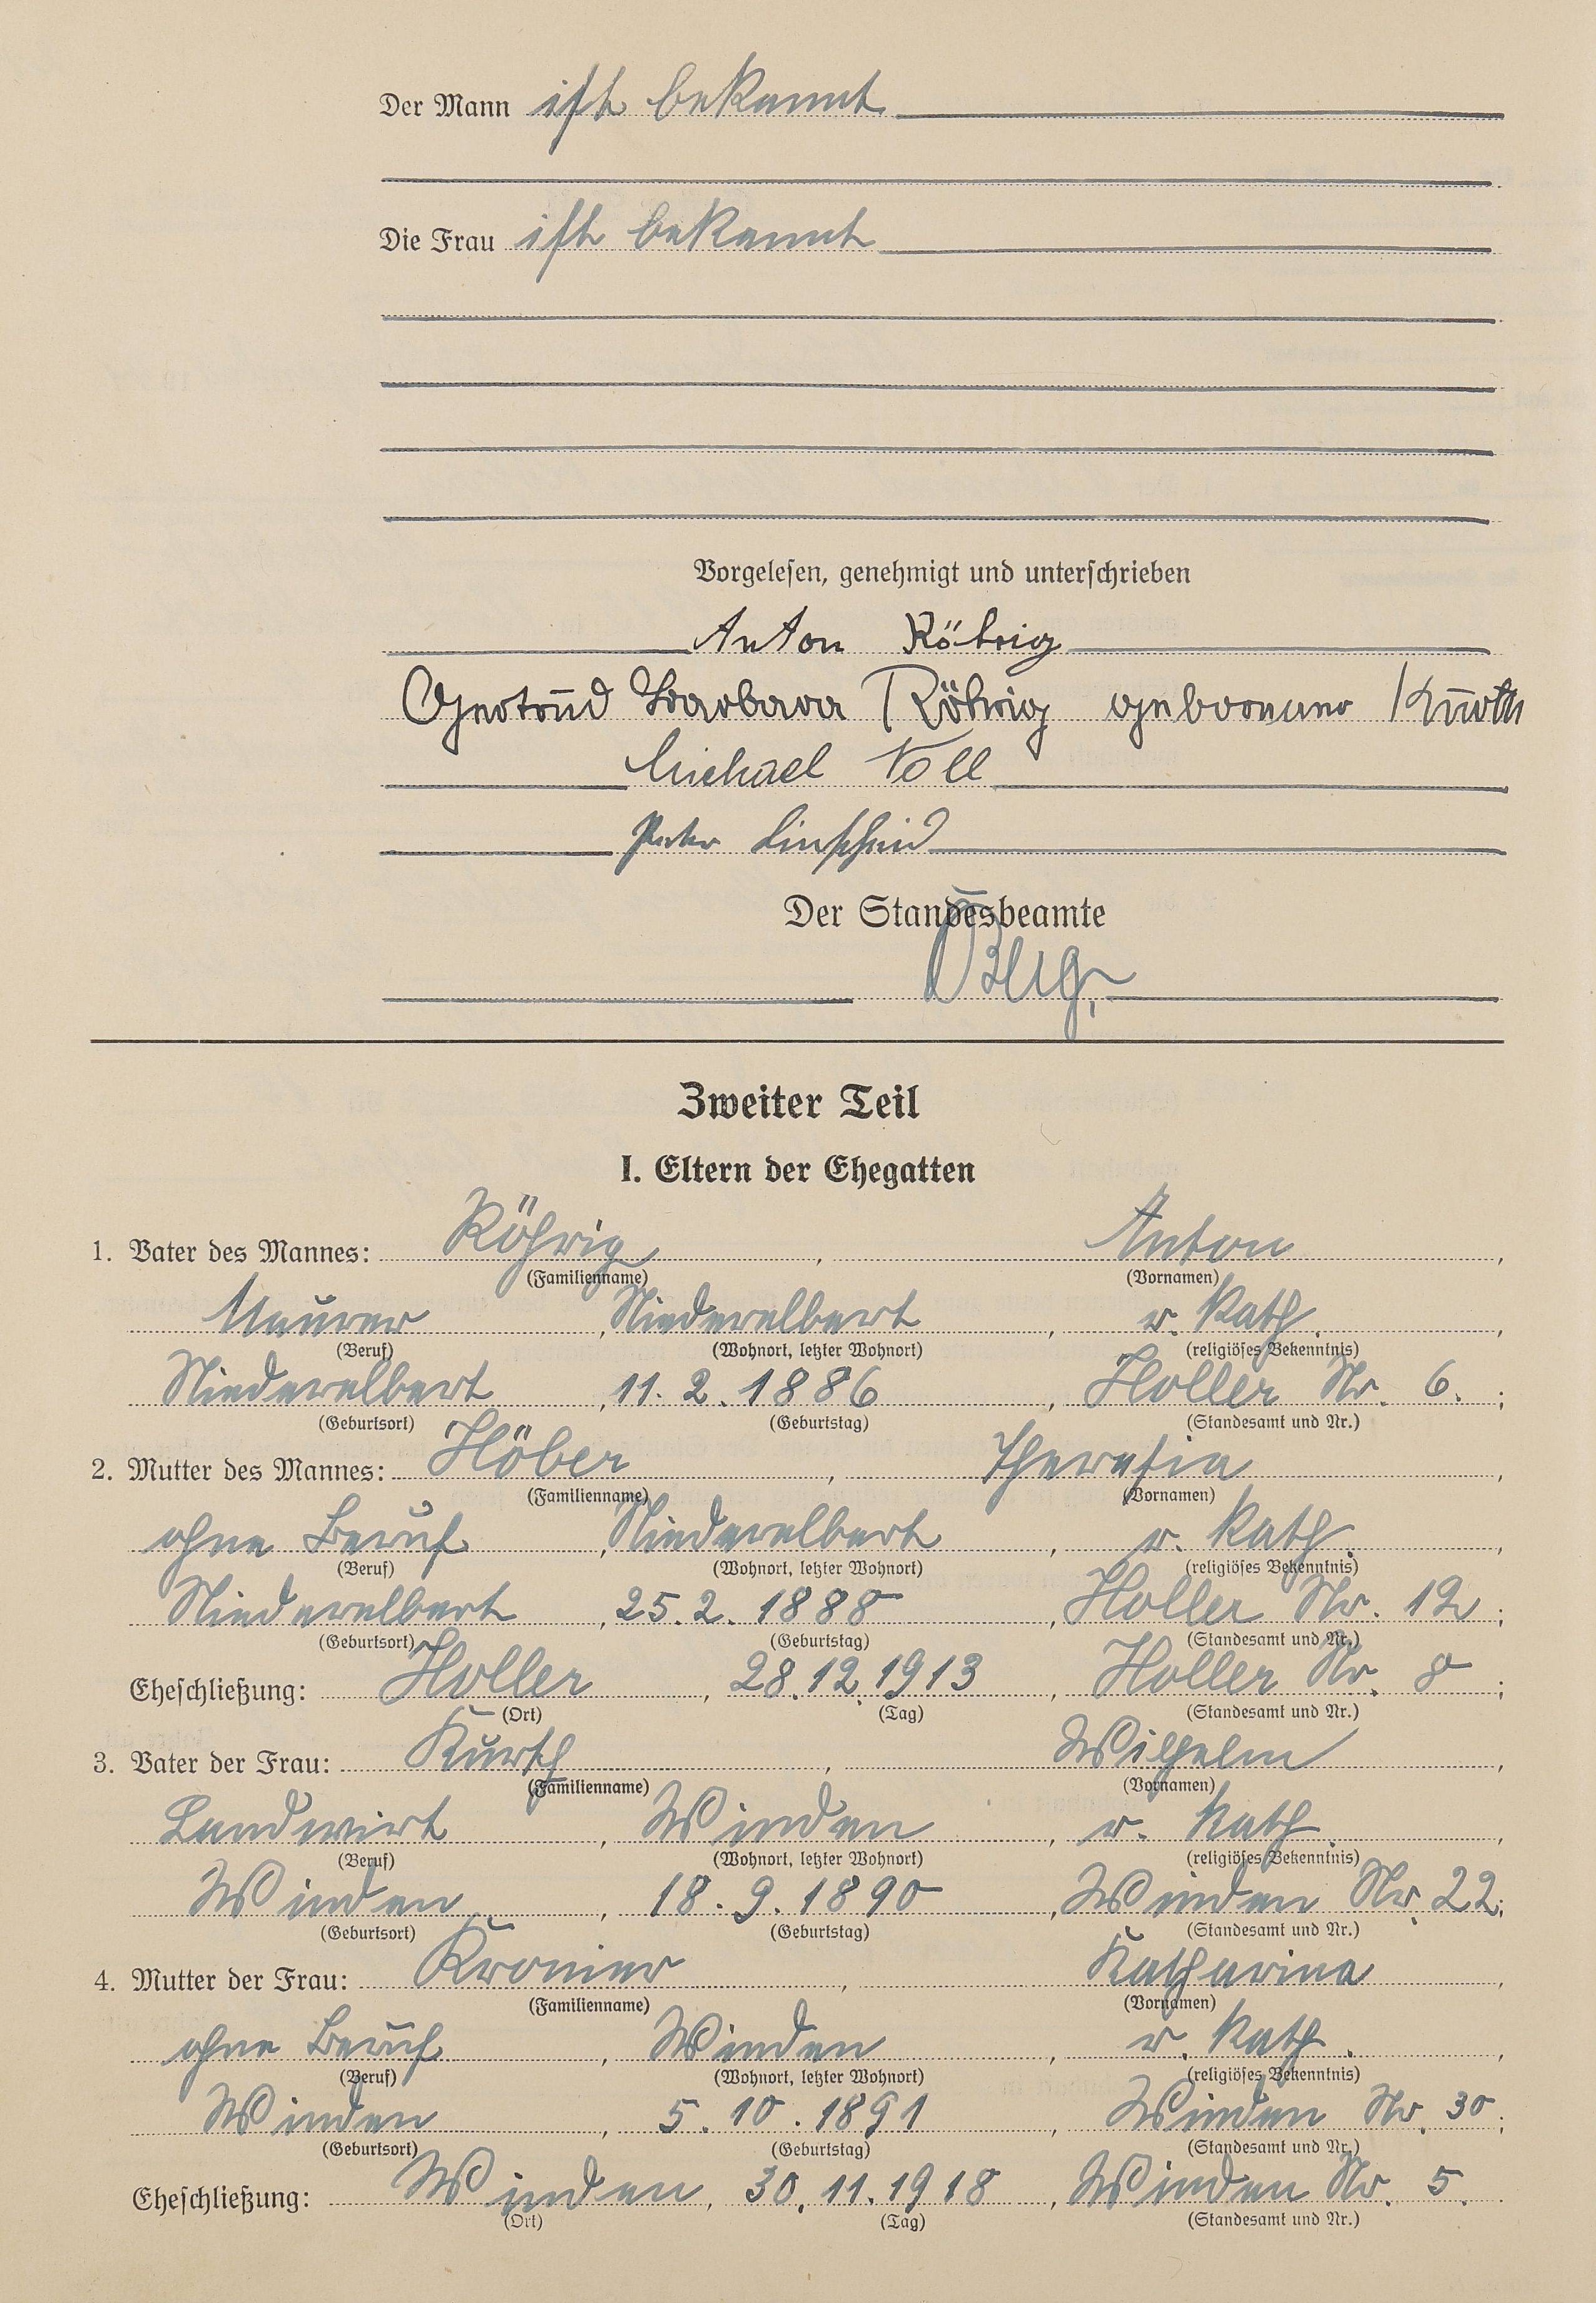 Der Mann ist bekannt
Die Frau ist bekannt
Vorgelesen, genehmigt und unterschrieben
Anton Röhrig
Gertrud Barbara Röhrig geborener Kurth
Michael Noll
Peter Linscheid
Der Standesbeamte
Zweiter Teil
I. Eltern der Ehegatten
1. Vater des Mannes: Röhrig, Anton,
(Familienname) (Vornamen)
Maurer, Niederelbert, r. Kath.,
(Beruf) (Wohnort, letzter Wohnort) (religiöses Bekenntnis)
Niederelbert, 11. 2. 1886, Holler Nr. 6.;
(Geburtsort) (Geburtstag) (Standesamt und Nr.)
2. Mutter des Mannes: Höber, Theresia,
(Familienname) (Vornamen)
ohne Beruf, Niederelbert, r. Kath.,
(Beruf) (Wohnort, letzter Wohnort) (religiöses Bekenntnis)
Niederelbert, 25. 2. 1888, Holler Nr. 12;
(Geburtsort) (Geburtstag) (Standesamt und Nr.)
Eheschließung: Holler, 28.12.1913, Holler Nr. 8;
(Ort) (Tag) (Standesamt und Nr.)
3. Vater der Frau: Kurth, Wilhelm,
(Familienname) (Vornamen)
Landwirt, Winden, r. Kath.,
(Beruf) (Wohnort, letzter Wohnort) (religiöses Bekenntnis)
Winden, 18. 9. 1890, Winden Nr. 22;
(Geburtsort) (Geburtstag) (Standesamt und Nr.)
4. Mutter der Frau: Kromer, Katharina,
(Familienname) (Vornamen)
ohne Beruf, Winden, r. Kath.,
(Beruf) (Wohnort, letzter Wohnort) (religiöses Bekenntnis)
Winden, 5. 10. 1891, Winden Nr. 30;
(Geburtsort) (Geburtstag) (Standesamt und Nr.)
Eheschließung: Winden, 30. 11. 1918, Winden Nr. 5.
(Ort) (Tag) (Standesamt und Nr.)